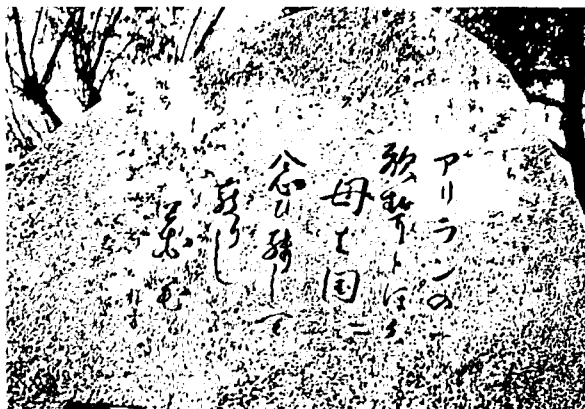 アリランの
歌声とほく
母の国に
念ひ残して
散りし
花花